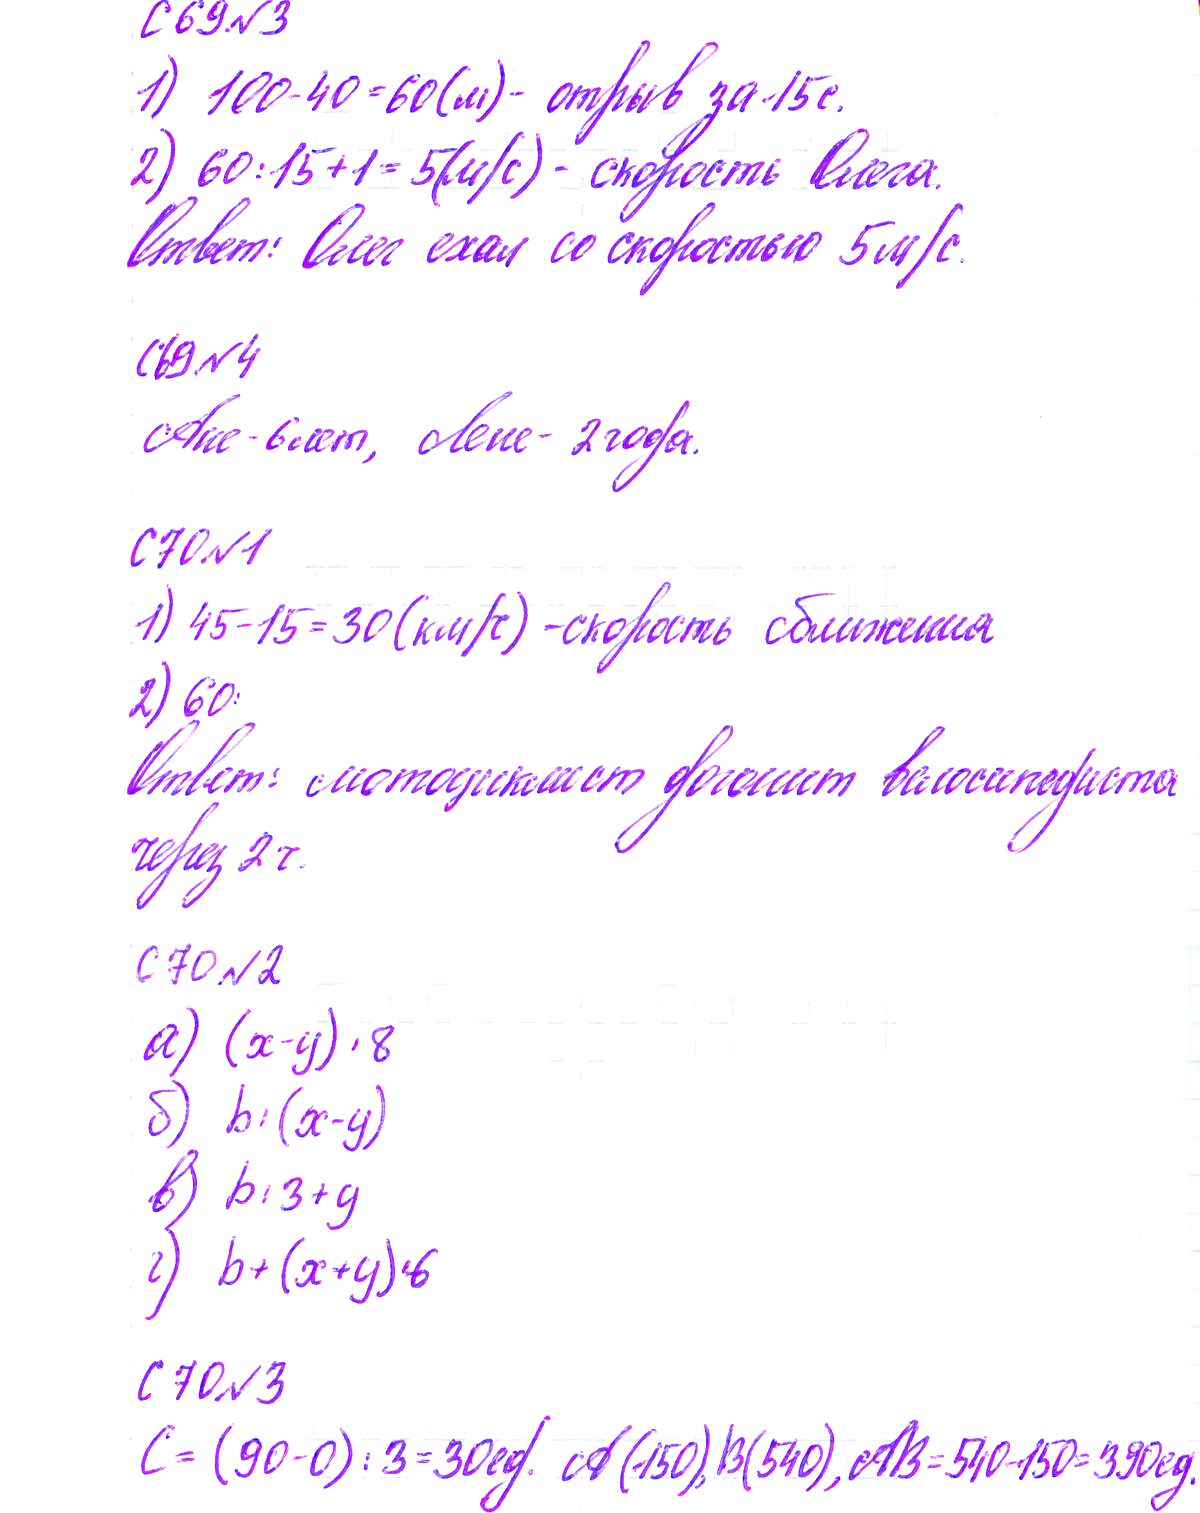 С69№3
1) 100-40=60(м)- отрыв за 15с.
2) 60:15+1=5(м/с)- скорость Олега.
Ответ: Олег ехал со скоростью 5м/с.
С69№4
Ане-6лет, Лене-2года.
С70№1
1) 45-15=30(км/ч)-скорость сближения
2) 60:
Ответ: мотоциклист догонит велосипедиста
через 2ч.
С70№2
а) (x-y)·8
б) b:(x-y)
в) b:3+y
г) b+(x+y)·6
С70№3
С=(90-0):3=30ед. А(150), В(540), АВ=540-150=390ед.